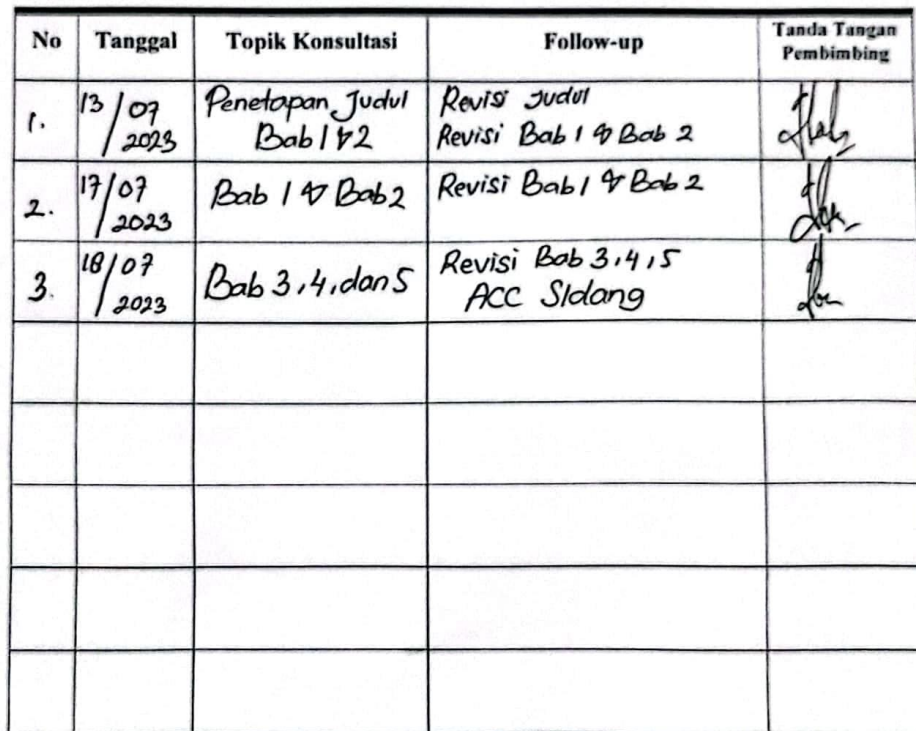 No Tanggal Topik Konsultasi Follow-up Tanda Tangan
Pembimbing
1. 13/07 Penetapan Judul Revisi Judul
2023 Bab 1 & 2 Revisi Bab 1 & Bab 2
2. 17/07 Bab 1 & Bab 2 Revisi Bab 1 & Bab 2
2023
3. 18/07 Bab 3,4, dan 5 Revisi Bab 3,4,5
2023 ACC Sidang